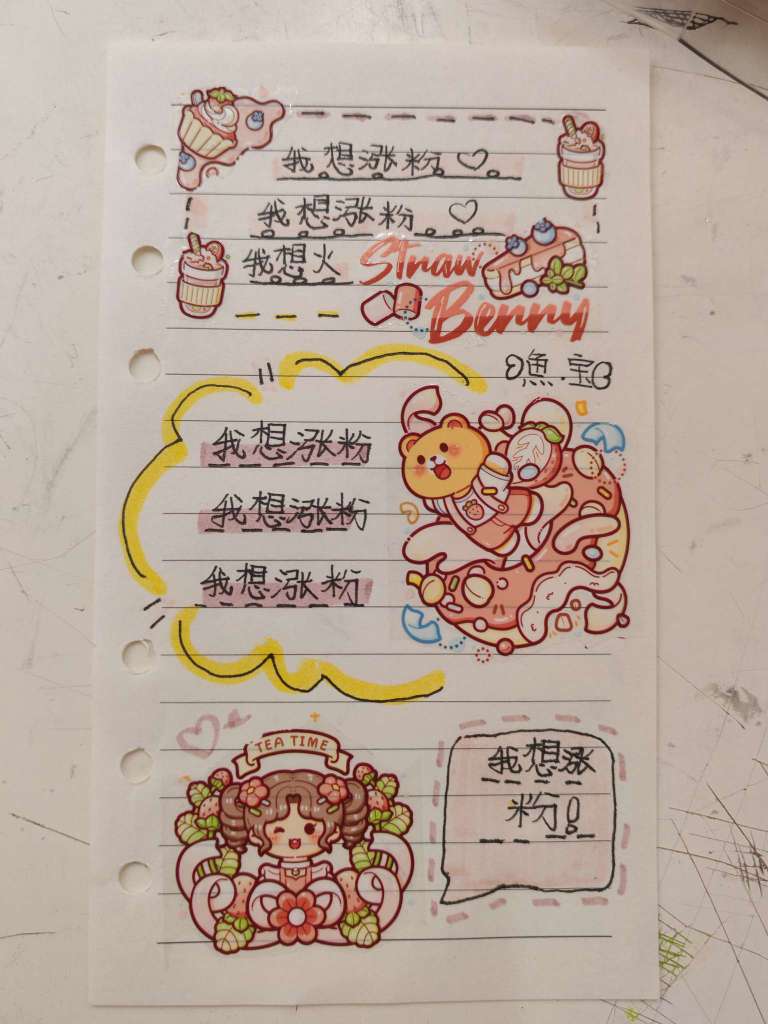 我想涨粉♡
我想涨粉♡
我想火
Straw
Berry
漁.宝
我想涨粉
我想涨粉
我想涨粉
TEA TIME
我想涨
粉!